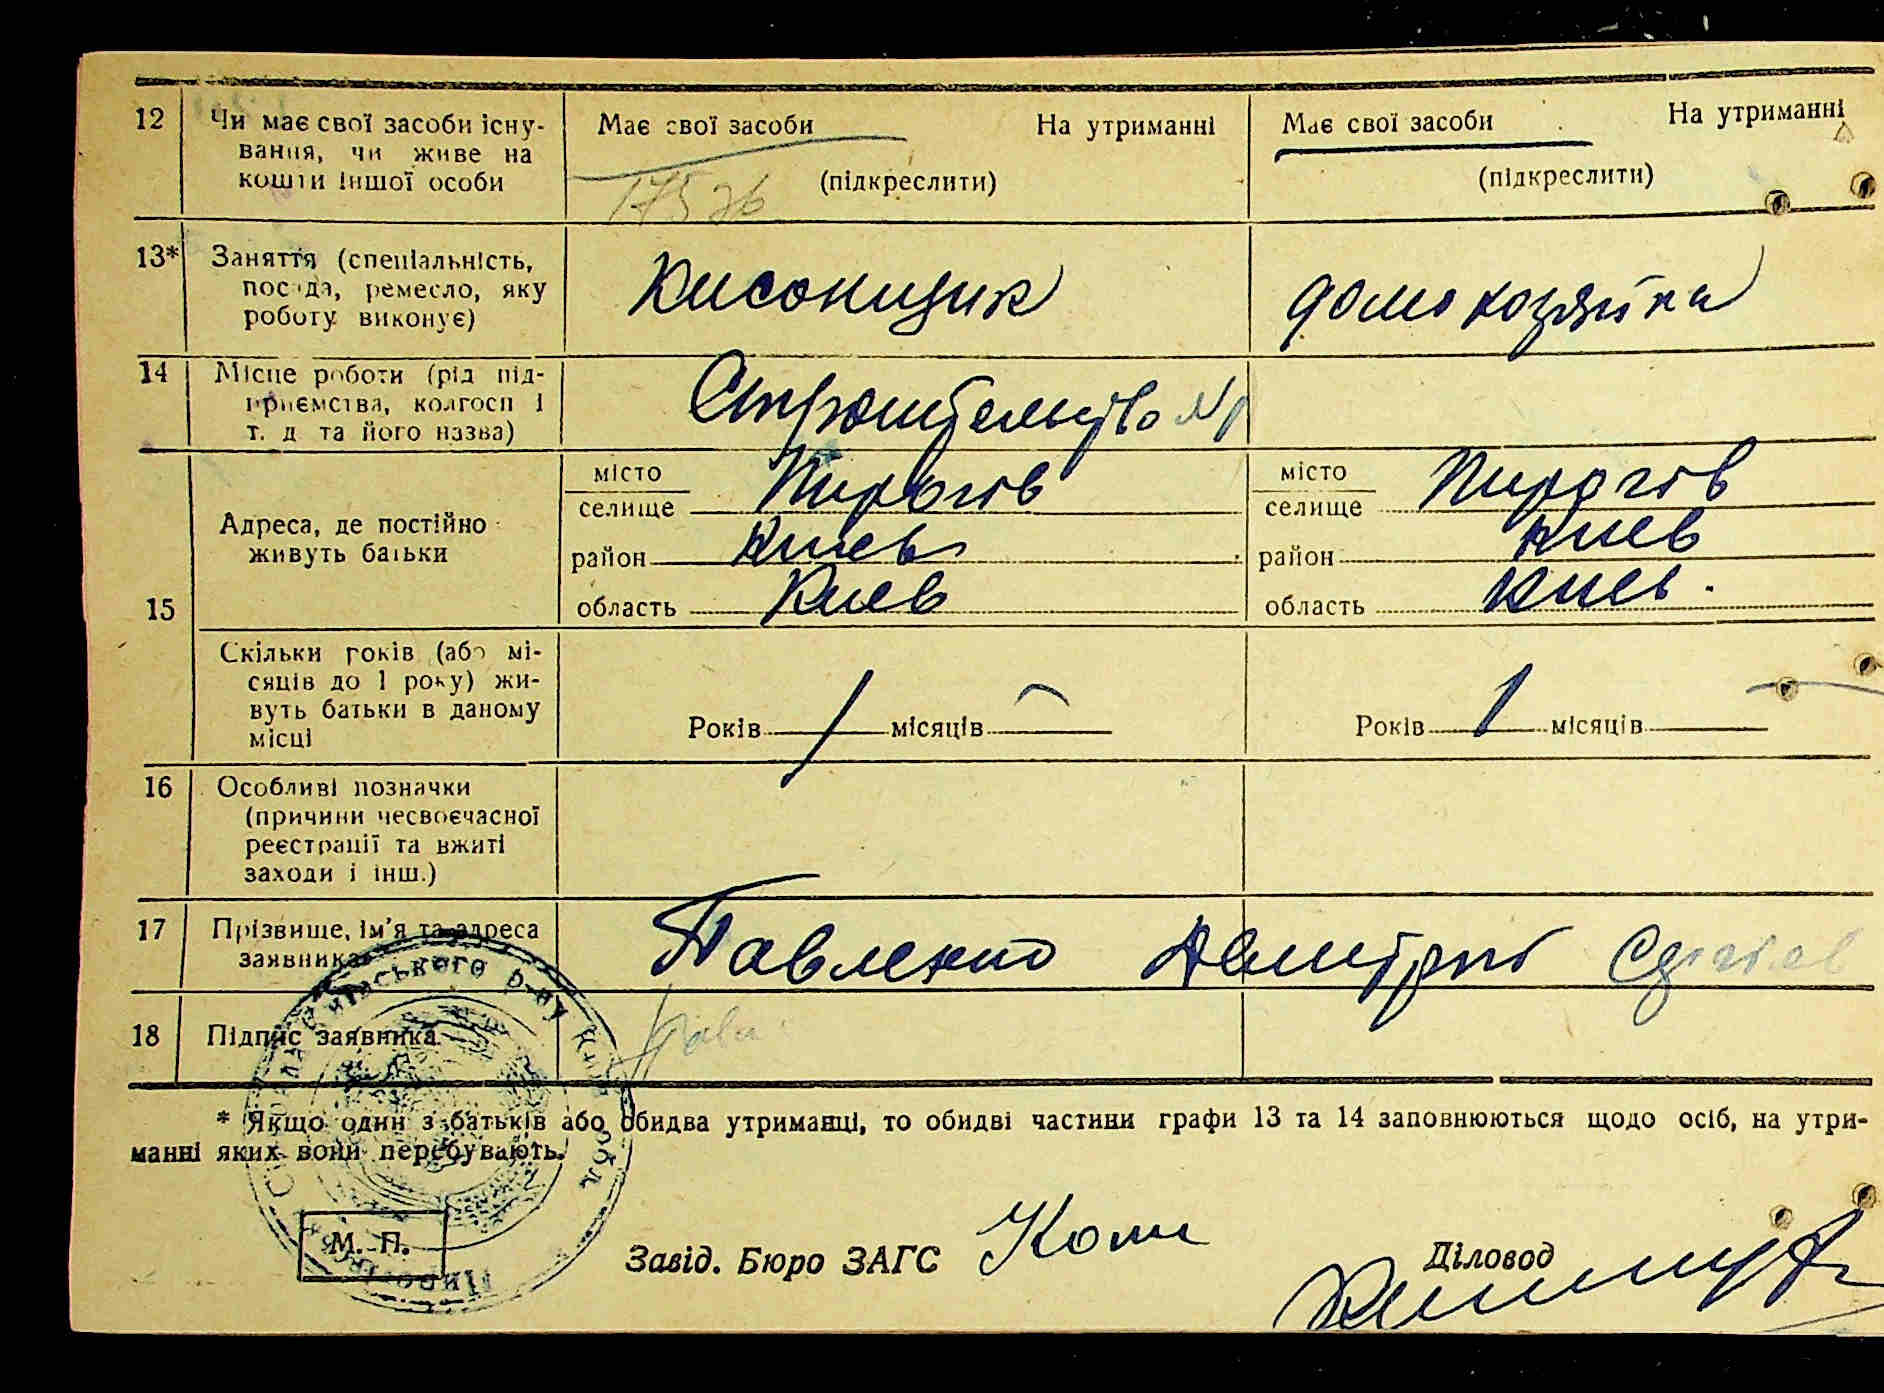 12 Чи має свої засоби існу-
вання, чи живе на
кошти іншої особи
Має свої засоби На утриманні
(підкреслити)
Має свої засоби На утриманні
(підкреслити)
13* Заняття (спеціальність,
посада, ремесло, яку
роботу виконує)
домохозяйка
14 Місце роботи (рід під-
приємства, колгосп і
т. д та його назва)
Строительство №
15 Адреса, де постійно
живуть батьки
місто
селище Пирогів
район Киев
область Киев
місто
селище Пирогів
район Киев
область Киев.
Скільки років (або мі-
сяців до 1 року) жи-
вуть батьки в даному
місці
Років 1 місяців —
Років 1 місяців —
16 Особливі позначки
(причини несвоєчасної
реєстрації та вжиті
заходи і інш.)
17 Прізвище, ім'я та адреса
заявника
Павленко Дмитрий
18 Підпис заявника
Пав
* Якщо один з батьків або обидва утриманці, то обидві частини графи 13 та 14 заповнюються щодо осіб, на утри-
манні яких вони перебувають.
М. П.
Завід. Бюро ЗАГС
Діловод